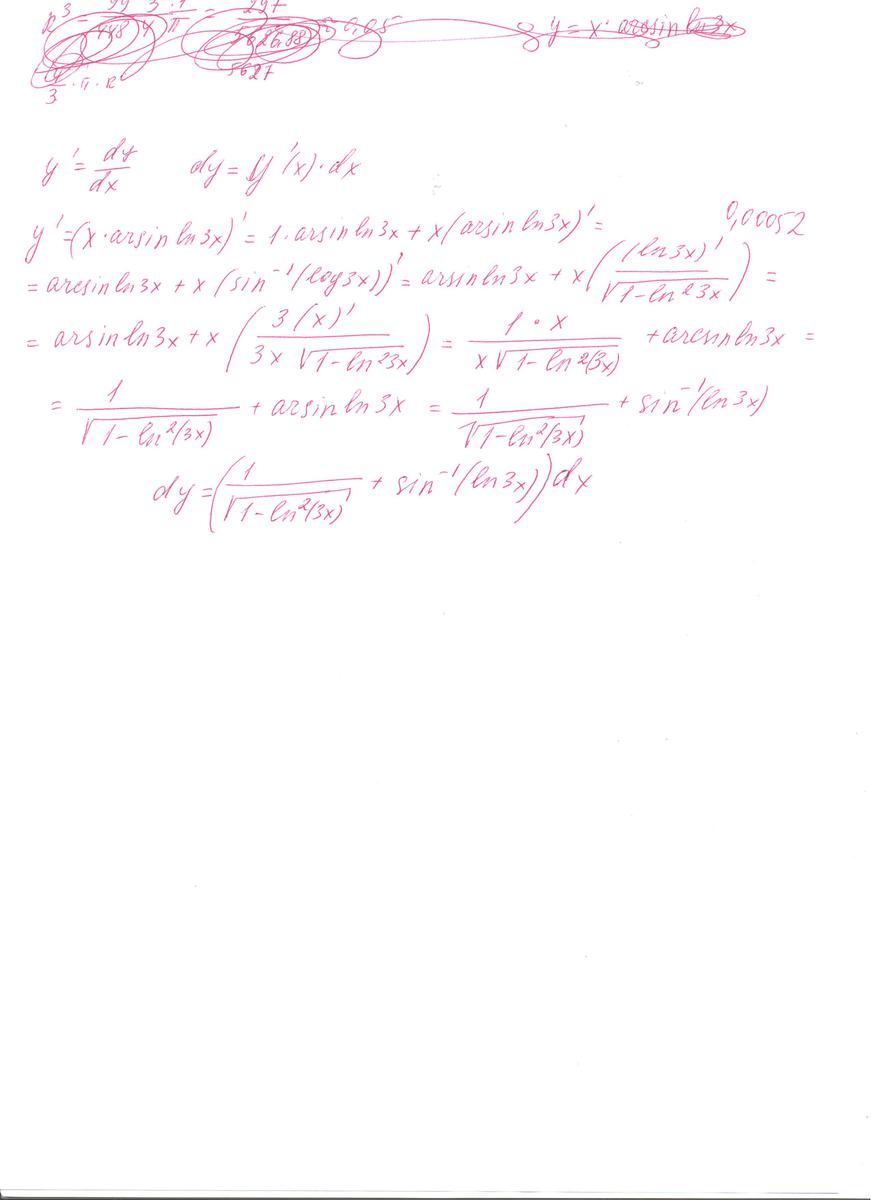 y = x · arcsin ln3x
4/3 · π · R
y' = dy/dx dy = y'(x)·dx
y' = (x·arsin ln3x)' = 1·arsin ln3x + x(arsin ln3x)' = 0,00052
= arcsin ln3x + x (sin⁻¹(log3x))' = arsin ln3x + x((ln3x)'/√(1-ln²3x)) =
= arsin ln3x + x (3(x)'/(3x √(1-ln²3x))) = 1·x/(x√(1-ln²(3x))) + arcsin ln3x =
= 1/√(1-ln²(3x)) + arsin ln3x = 1/√(1-ln²(3x)) + sin⁻¹(ln3x)
dy = (1/√(1-ln²(3x)) + sin⁻¹(ln3x))dx